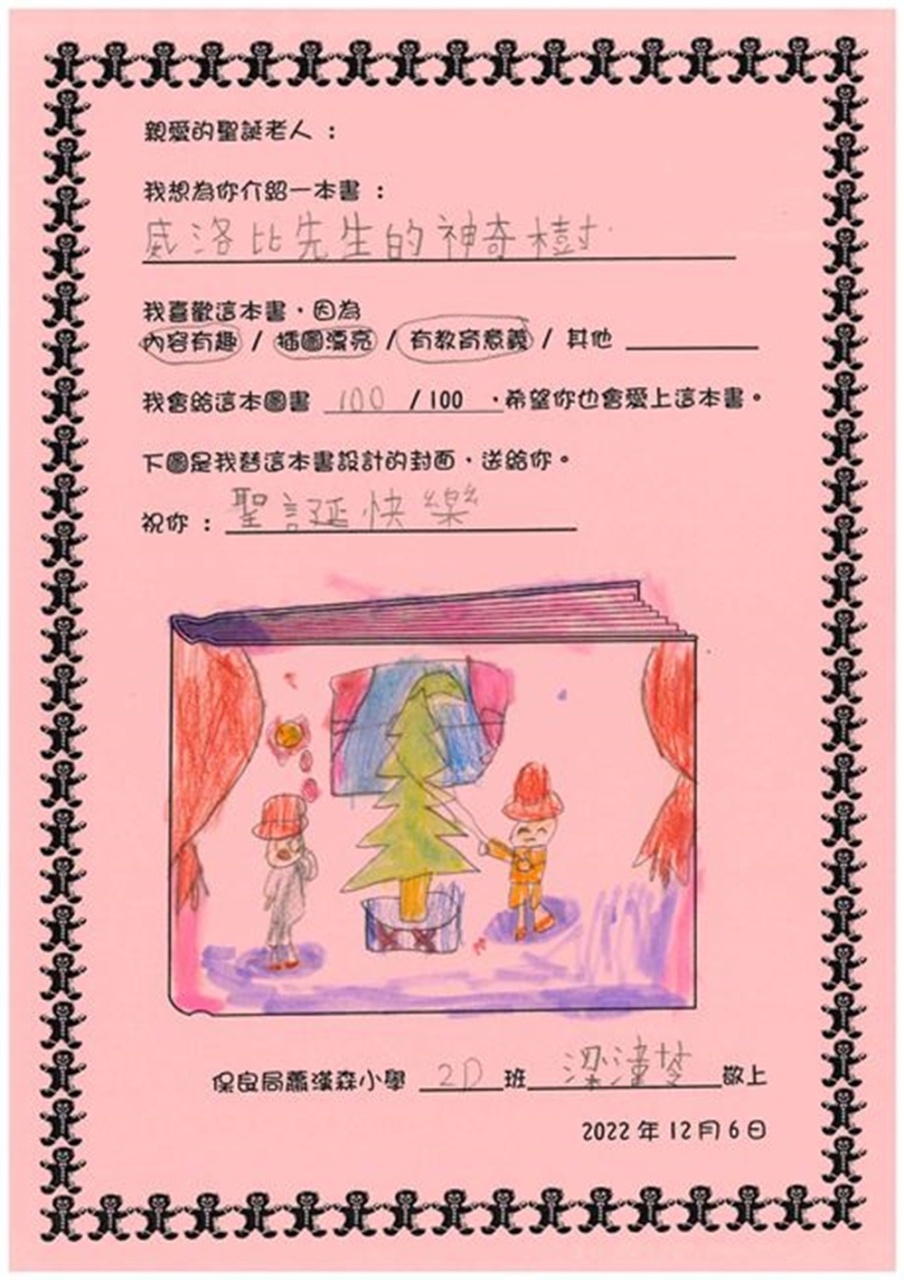 親愛的聖誕老人：
我想為你介紹一本書：
威洛比先生的神奇樹
我喜歡這本書，因為
內容有趣 / 插圖漂亮 / 有教育意義 / 其他
我會給這本圖書 100 / 100 ，希望你也會愛上這本書。
下圖是我替這本書設計的封面，送給你。
祝你：聖誕快樂
保良局蕭漢森小學 2D 班 梁潼 敬上
2022 年 12 月 6 日